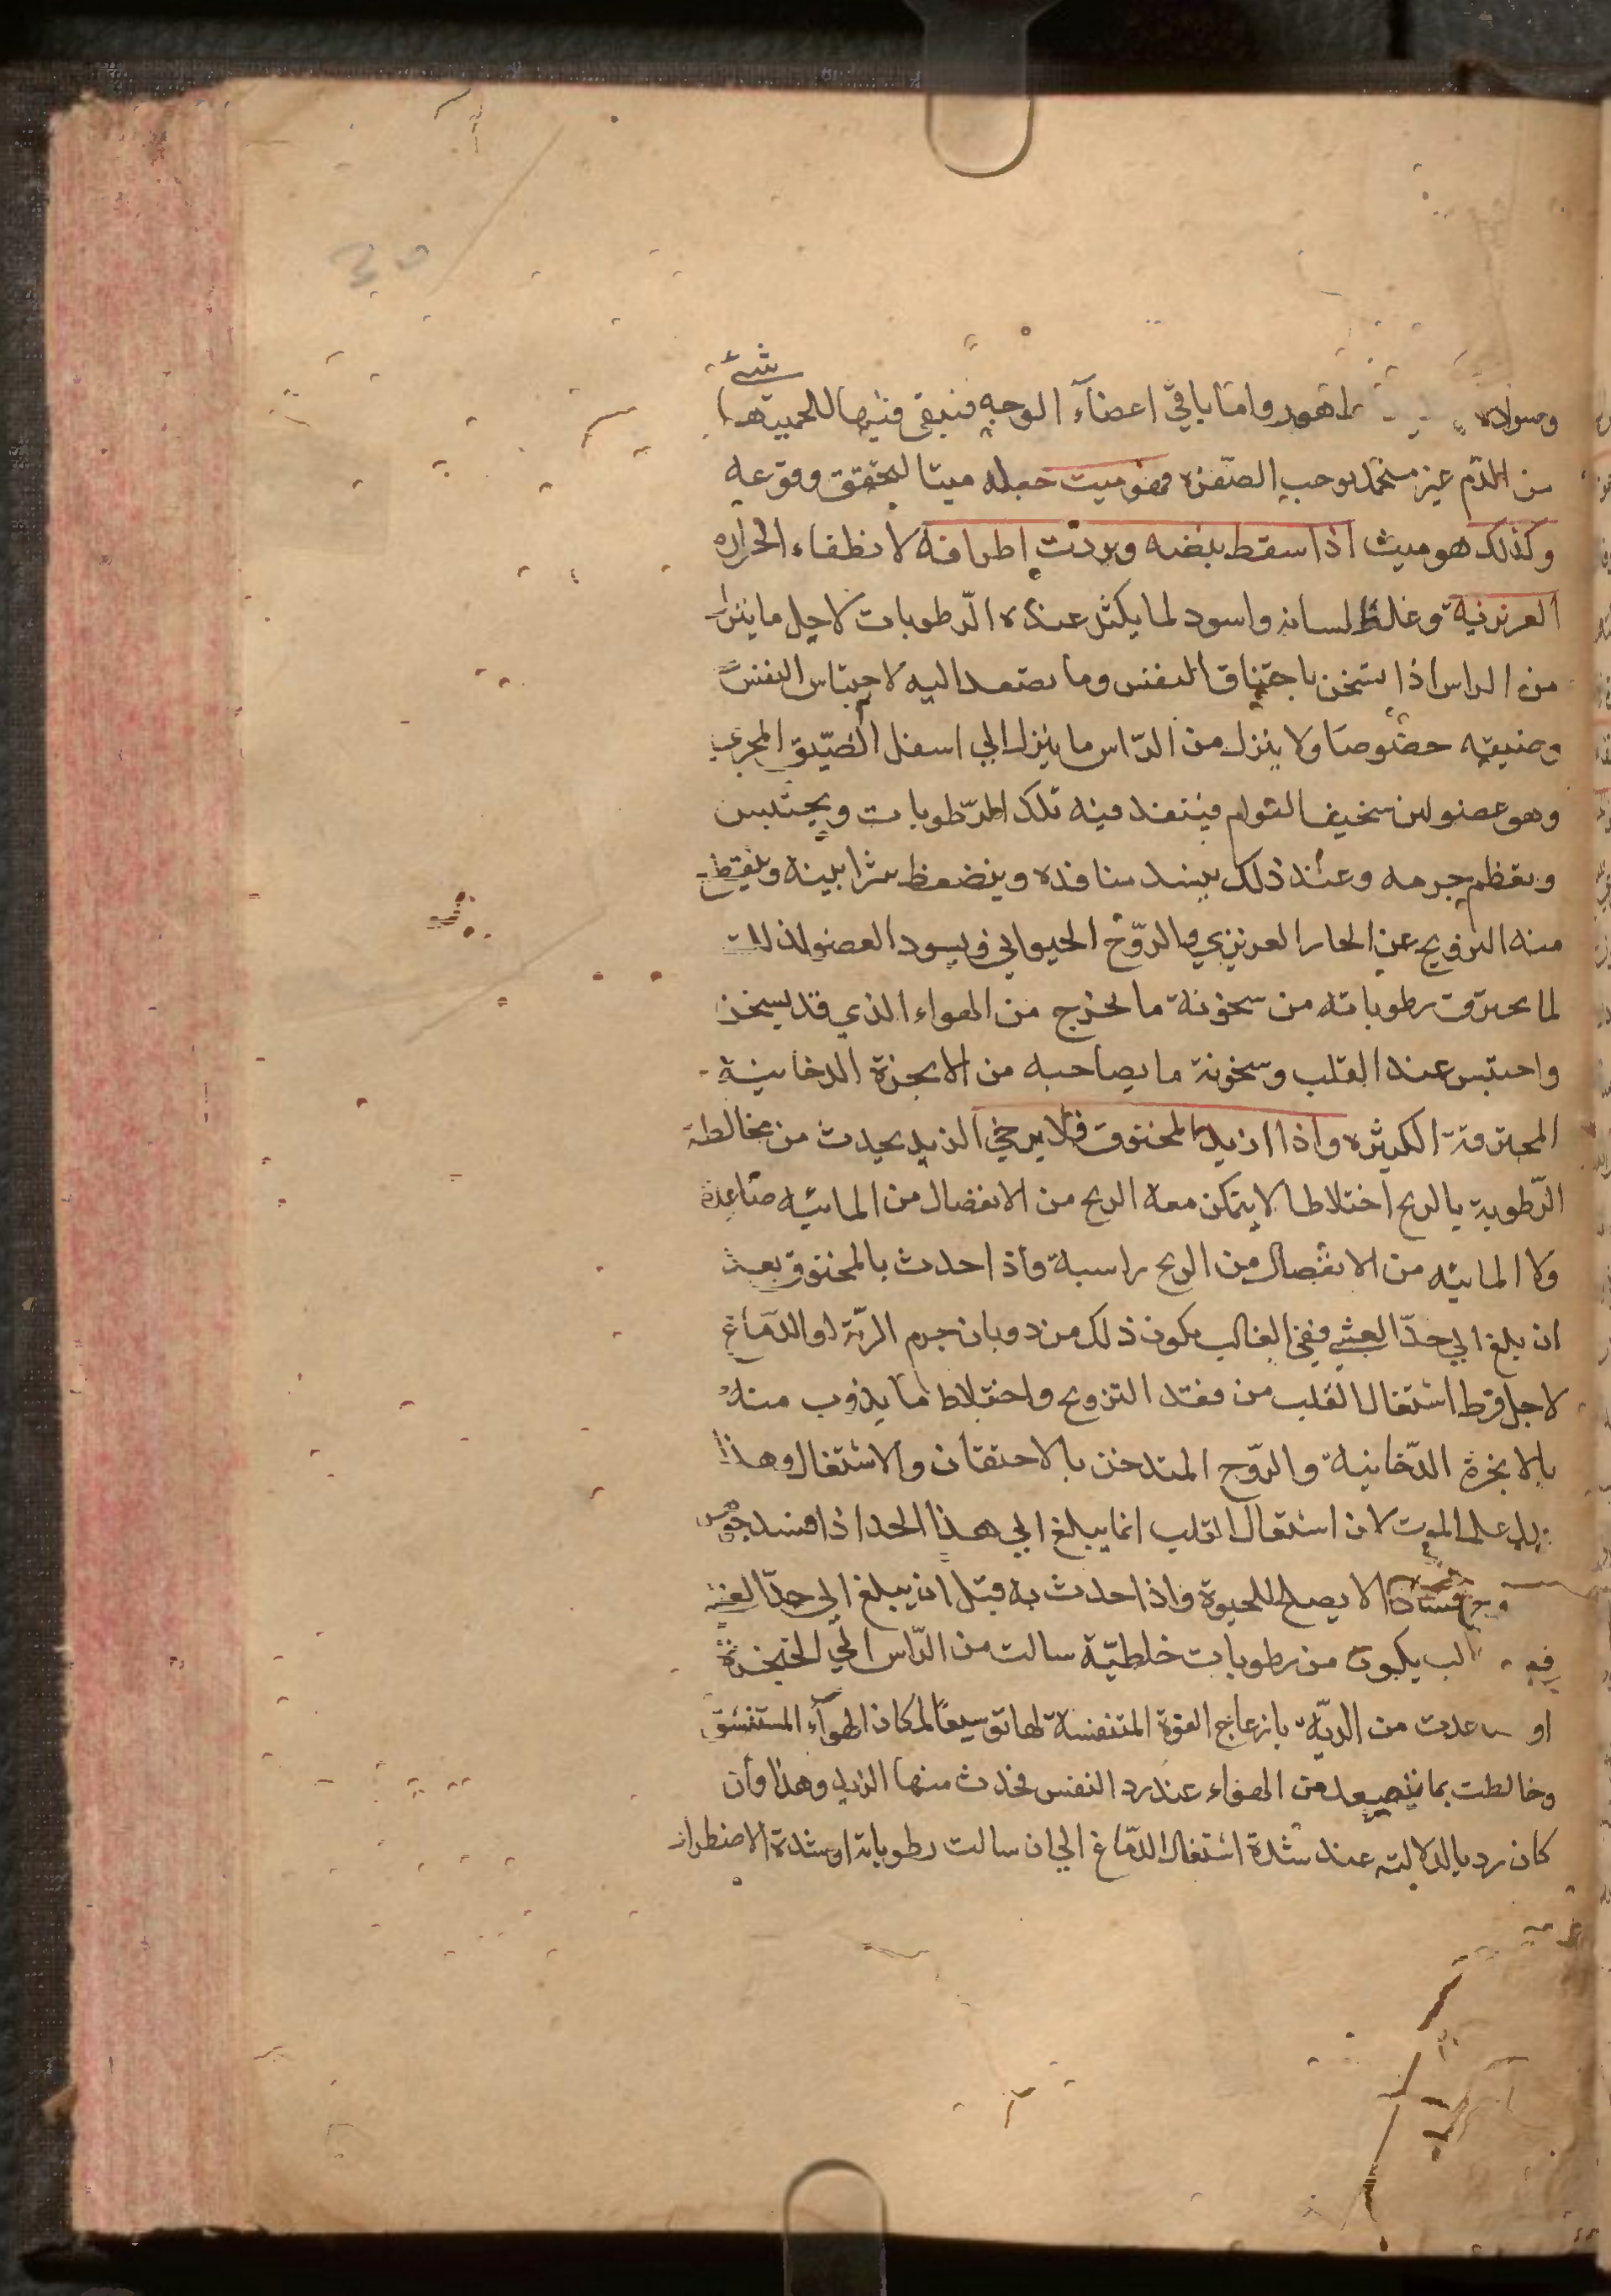 واما باقي اعضآء الوجه فيبقى فيها للحميتها شئ
من الدم غير منجمد يوجب الصفرة فهو ميت جعله ميتا لتحقق وقوعه
وكذلك هو ميت اذا سقط نبضه وبردت اطرافه لانطفاء الحرارة
الغريزية وغلظ لسانه واسود لما يكثر عنده الرطوبات لاجل ما ينزل
من الراس اذا يسخن باختناق النفس وما يصعد اليه لاحتباس النفس
وضيقه خصوصا ولا ينزل من الراس ما ينزل الي اسفل لضيق المجري
وهو عضو لين سخيف القوام فينفذ فيه تلك الرطوبات ويحتبس
ويعظم جرمه وعند ذلك ينسد منافذه وينضغط شرايينه وينقطع
منه الترويح عن الحار الغريزي والروح الحيواني ويسود العضو لذلك
لما يحترق رطوباته من سخونة ما يخرج من الهواء الذي قد يسخن
واحتبس عند القلب وسخونة ما يصاحبه من الابخرة الدخانية
المحترقة الكثيرة واذا ازبد المخنوق فلا يرجي الزبد يحدث من مخالطة
الرطوبة بالريح اختلاطا لا يتمكن معه الريح من الانفصال من المائيه صاعدة
ولا المائيه من الانفصال من الريح راسبة واذا حدث بالمخنوق بعد
ان بلغ الي حدّ الغشي ففي الغالب يكون ذلك من ذوبان جرم الرية او الدماغ
لاجل فرط اشتعال القلب من فقد الترويح واختلاط ما يذوب منه
بالابخرة الدّخانية والروّح المتدخن بالاحتقان والاشتعال وهذا
يدل على الموت لان اشتعال القلب انما يبلغ الي هذا الحد اذا فسد
فسادا لا يصلح للحيوة واذا حدث به قبل ان يبلغ الي حدّ الغشي
يكون من رطوبات خلطيّة سالت من الرّاس الي الحنجرة
او صاعدت من الريّة بازعاج القوة المتنفسة لها توسيعا لمكان الهوآء المستنشق
وخالطت بما يتصعد من الهواء عند رد النفس فحدث منها الزبد وهذا وان
كان رديا لدلالته عند شدة اشتعال الدّماغ الي ان سالت رطوباته او شدة الاضطرار